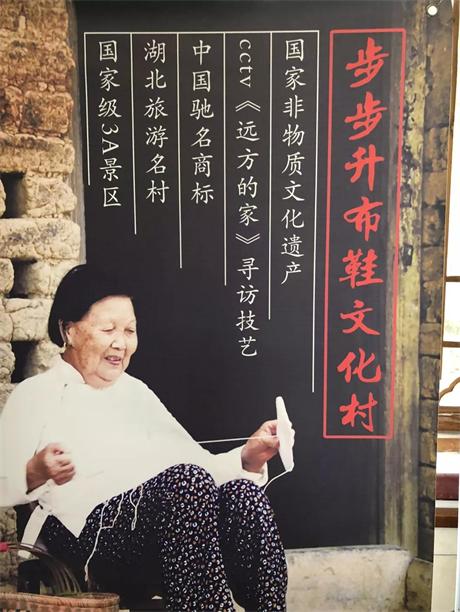 步步升布鞋文化村
国家非物质文化遗产
cctv《远方的家》寻访技艺
中国驰名商标
湖北旅游名村
国家级3A景区